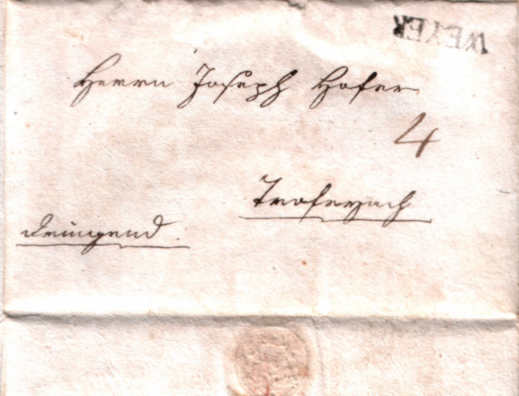 WEYER
Herrn Joseph Hofer
4
Trofeyach
dringend.